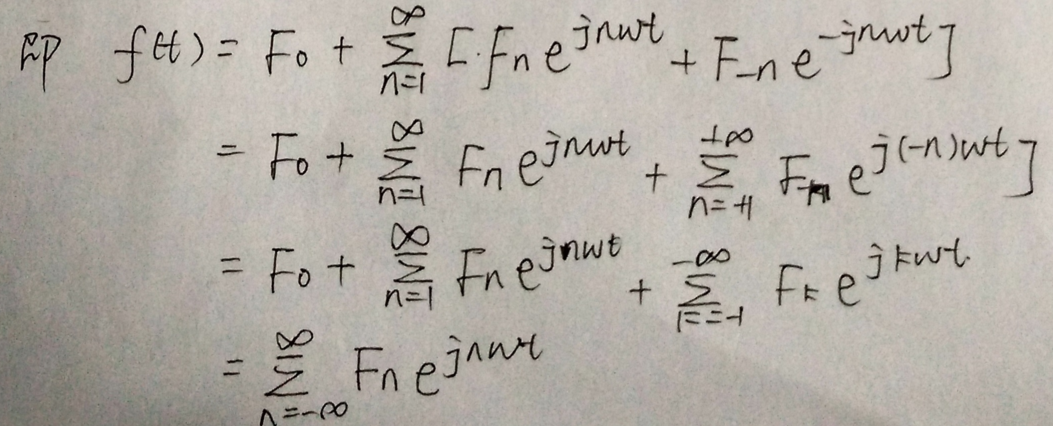 即 f(t) = F₀ + ∑_{n=1}^{∞} [F_n e^{jnwt} + F_{-n} e^{-jnwt}]
= F₀ + ∑_{n=1}^{∞} F_n e^{jnwt} + ∑_{n=+1}^{+∞} F_{-n} e^{j(-n)wt}]
= F₀ + ∑_{n=1}^{∞} F_n e^{jnwt} + ∑_{k=-1}^{-∞} F_k e^{jkwt}
= ∑_{n=-∞}^{∞} F_n e^{jnwt}